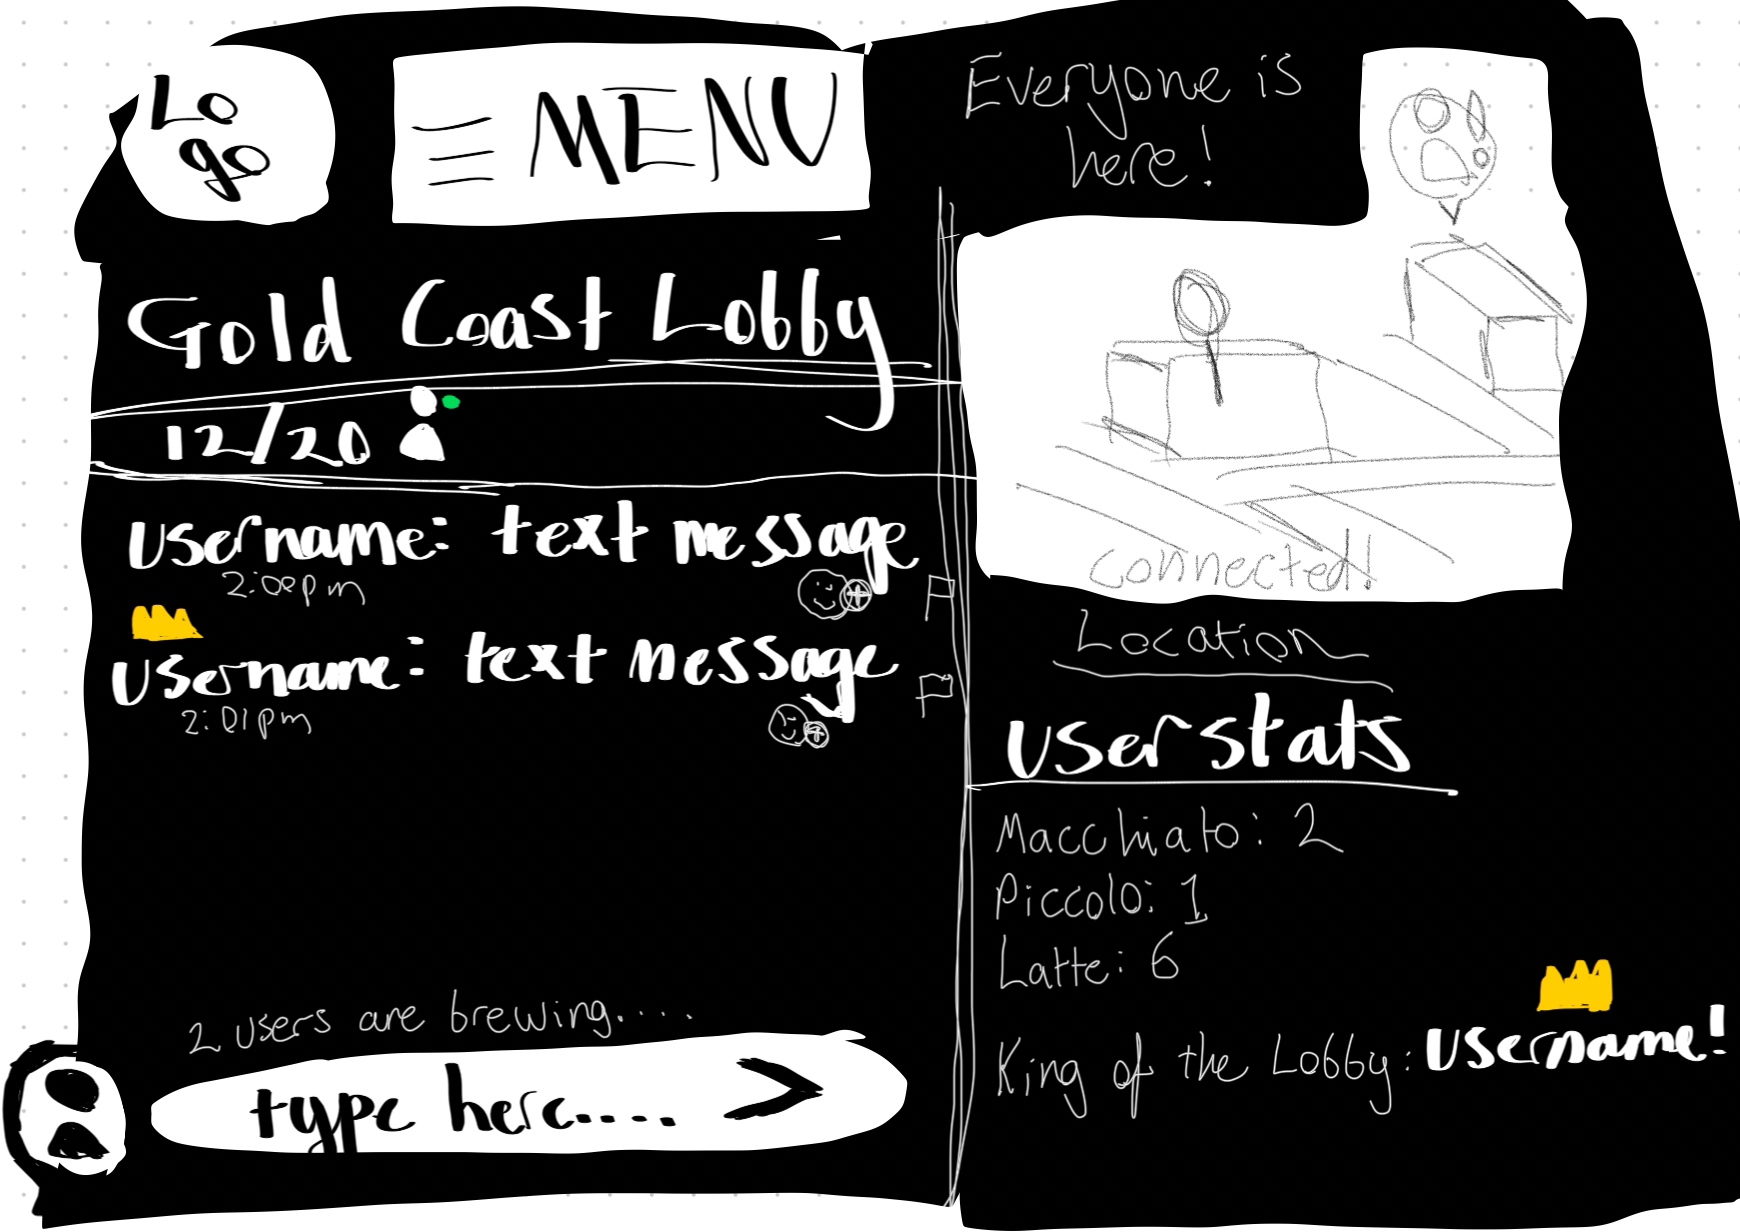 Lo
go
MENU
Gold Coast Lobby
12/20
Username: text message
2:00pm
Username: text message
2:01pm
2 users are brewing....
type here....
Everyone is
here!
connected!
Location
User stats
Macchiato: 2
Piccolo: 1
Latte: 6
King of the Lobby: Username!